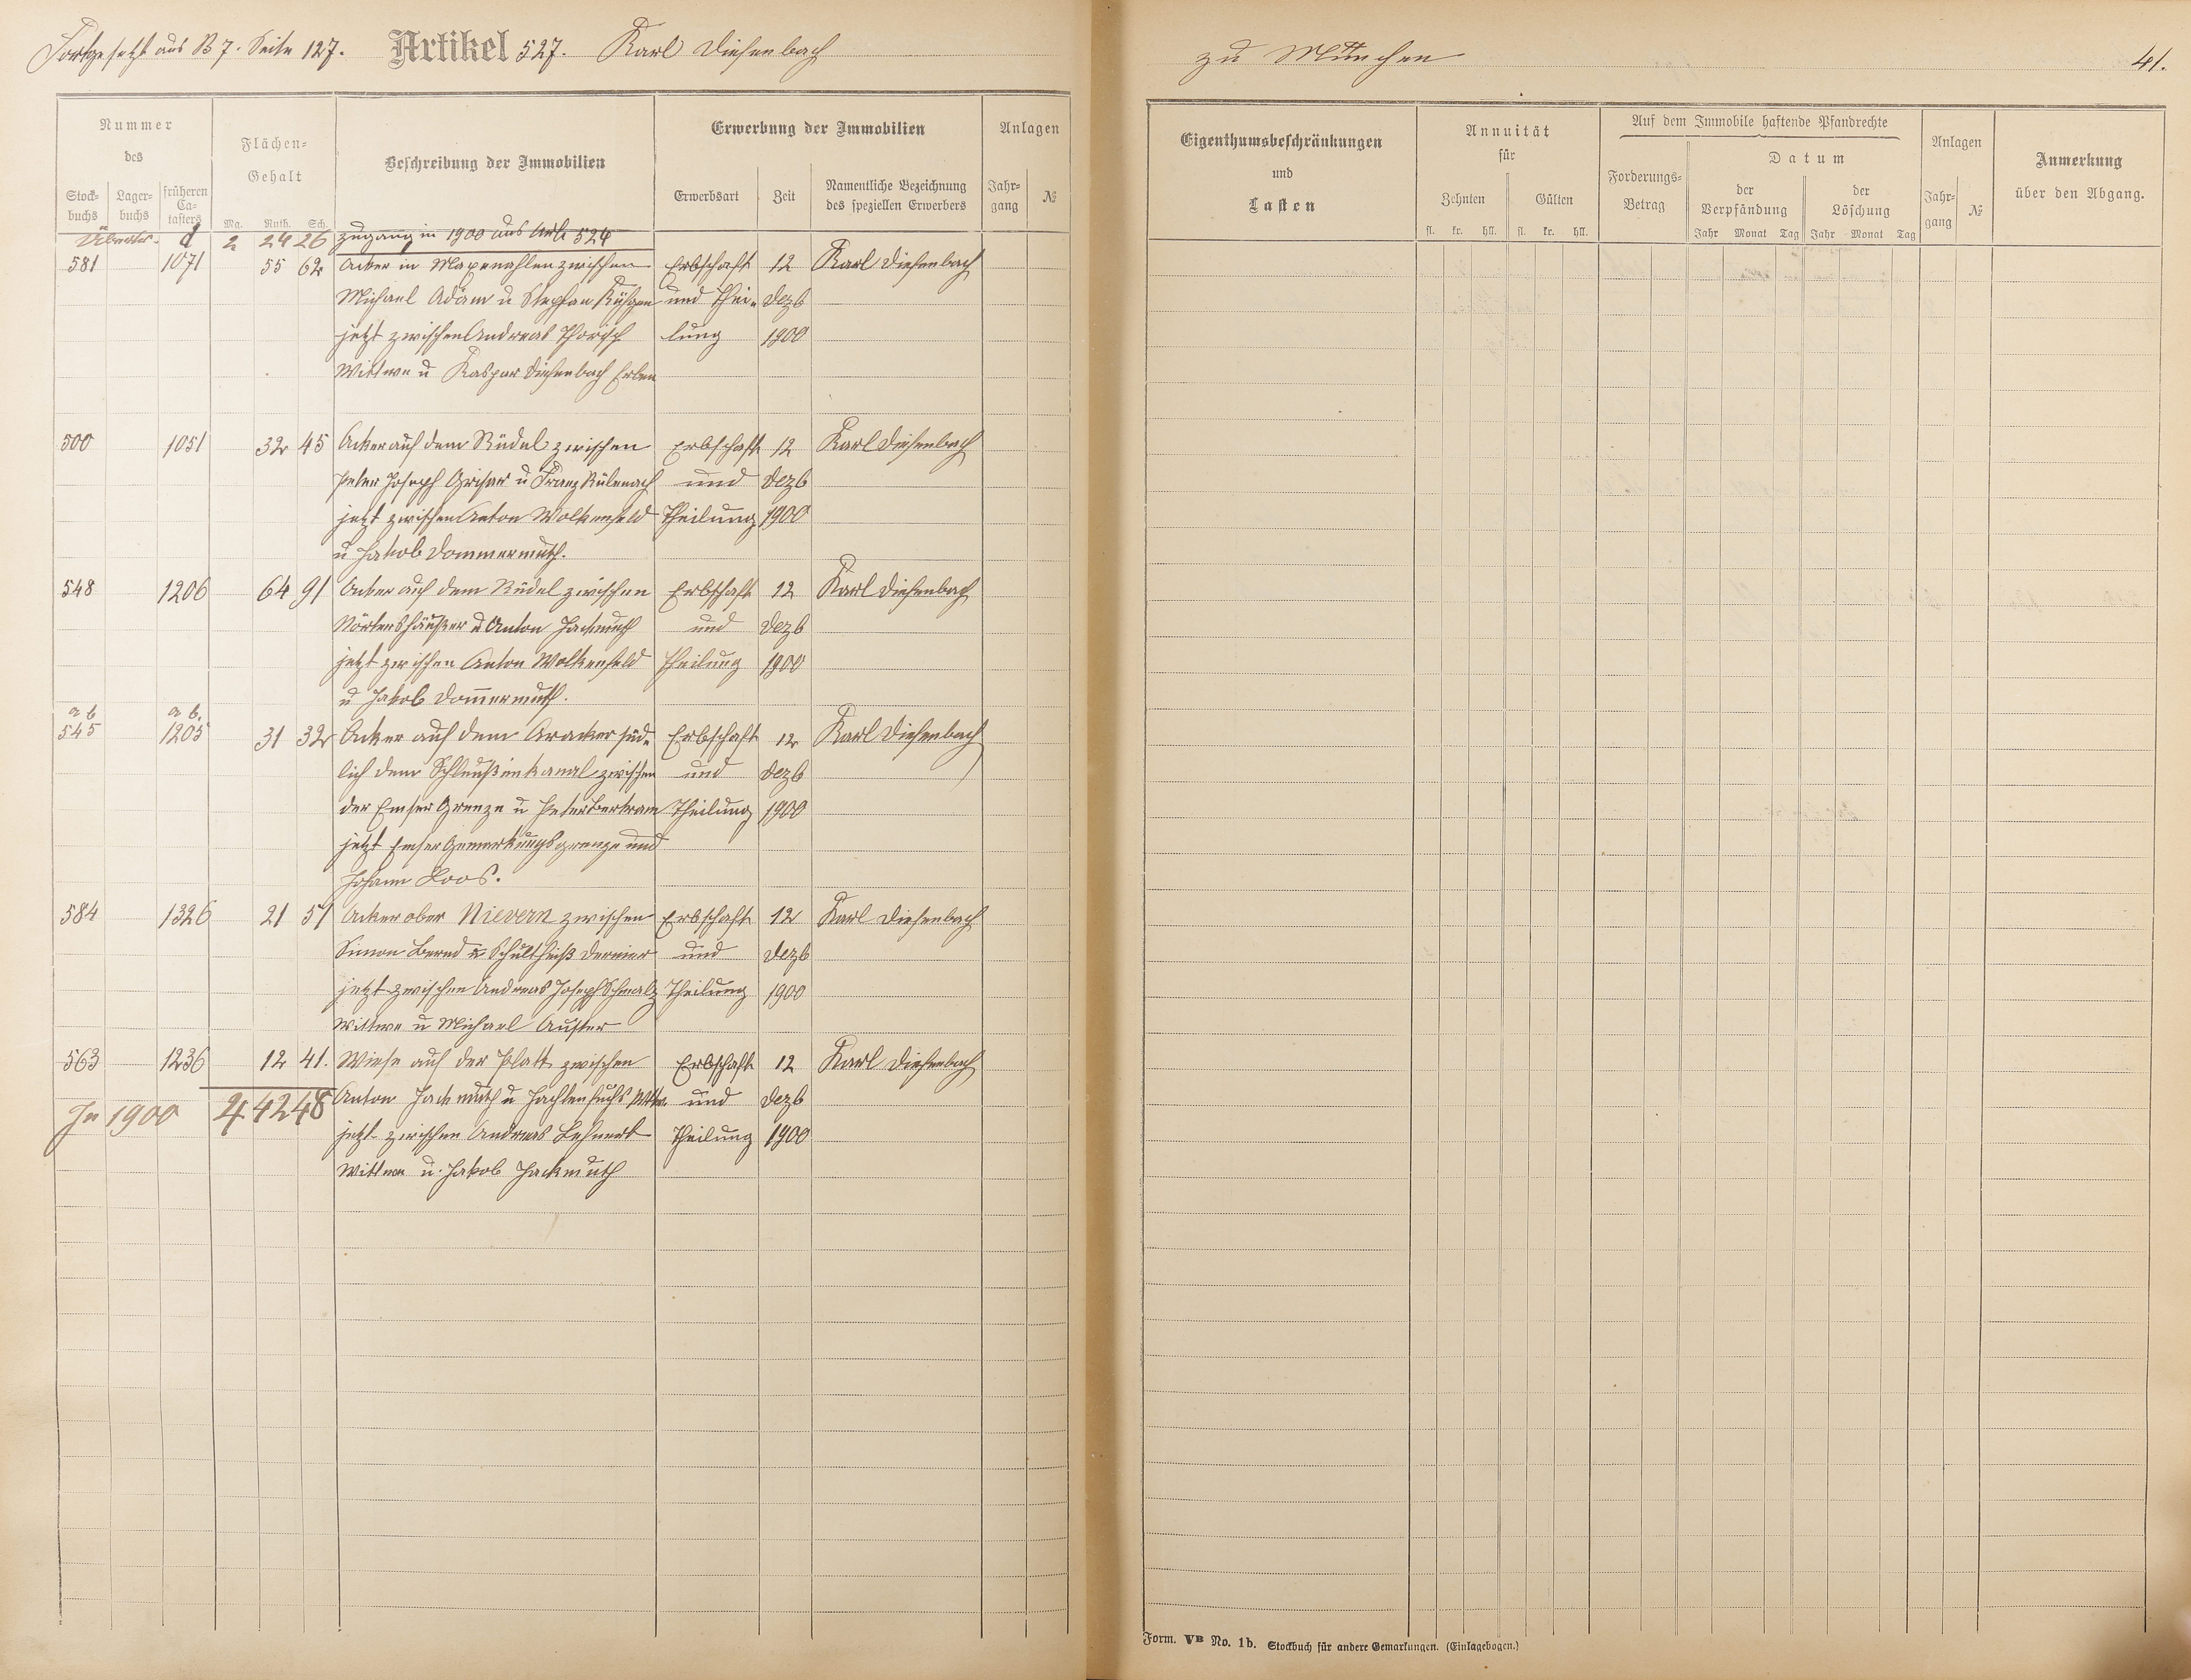 Fortgesetzt aus B 7. Seite 127. Artikel 527. Karl Diefenbach
zu München 41.
Nummer
des
Stock-
buchs
Lager-
buchs
früheren
Ca-
tasters
Flächen-
Gehalt
Mg. Ruth. Sch.
Beschreibung der Immobilien
Erwerbung der Immobilien
Erwerbsart
Zeit
Namentliche Bezeichnung
des speziellen Erwerbers
Anlagen
Jahr-
gang
№
Eigenthumsbeschränkungen
und
Lasten
Annuität
für
Zehnten
Gülten
fl. kr. hll. fl. kr. hll.
Auf dem Immobile haftende Pfandrechte
Forderungs-
Betrag
Datum
der
Verpfändung
der
Löschung
Jahr Monat Tag Jahr Monat Tag
Anlagen
Jahr-
gang
№
Anmerkung
über den Abgang.
2 24 26 Zugang in 1900 aus Artl 524
581 1071 55 62 Acker in zwischen Erbschaft 12 Karl Diefenbach
Michael Adam u Stephan und Thei- Dezb
jetzt zwischen Andreas lung 1900
Wittwe u Kaspar Diefenbach Erben
500 1051 32 45 Acker auf dem Rüdel zwischen Erbschaft 12 Karl Diefenbach
Peter Joseph Grisar u Franz und Dezb
jetzt zwischen Anton Wolkenfeld Theilung 1900
u Jakob Dommermuth.
548 1206 64 91 Acker auf dem Rüdel zwischen Erbschaft 12 Karl Diefenbach
Nörtershäußer u Anton Hackmuth und Dezb
jetzt zwischen Anton Wolkenfeld Theilung 1900
u Jakob Dom̅ermuth.
a b a b.
545 1205 31 32 Acker auf dem Aracker süd- Erbschaft 12 Karl Diefenbach
lich dem Schleußenkanal zwischen und Dezb
der Emser Grenze u Peter Bertram Theilung 1900
jetzt Emser Gemarkungsgrenze und
Johann Loos.
584 1326 21 51 Acker ober Nievern zwischen Erbschaft 12 Karl Diefenbach
Simon Bernd u Schultheiß und Dezb
jetzt zwischen Andreas Joseph Schmalz Theilung 1900
Wittwe u Michael Auster
563 1236 12 41. Wiese auf der Platt zwischen Erbschaft 12 Karl Diefenbach
Anton Hackmuth u und Dezb
In 1900 4 42 48
jetzt zwischen Andreas Lehnert Theilung 1900
Wittwe u. Jakob Hackmuth
Form. VB No. 1b. Stockbuch für andere Gemarkungen. (Einlagebogen.)